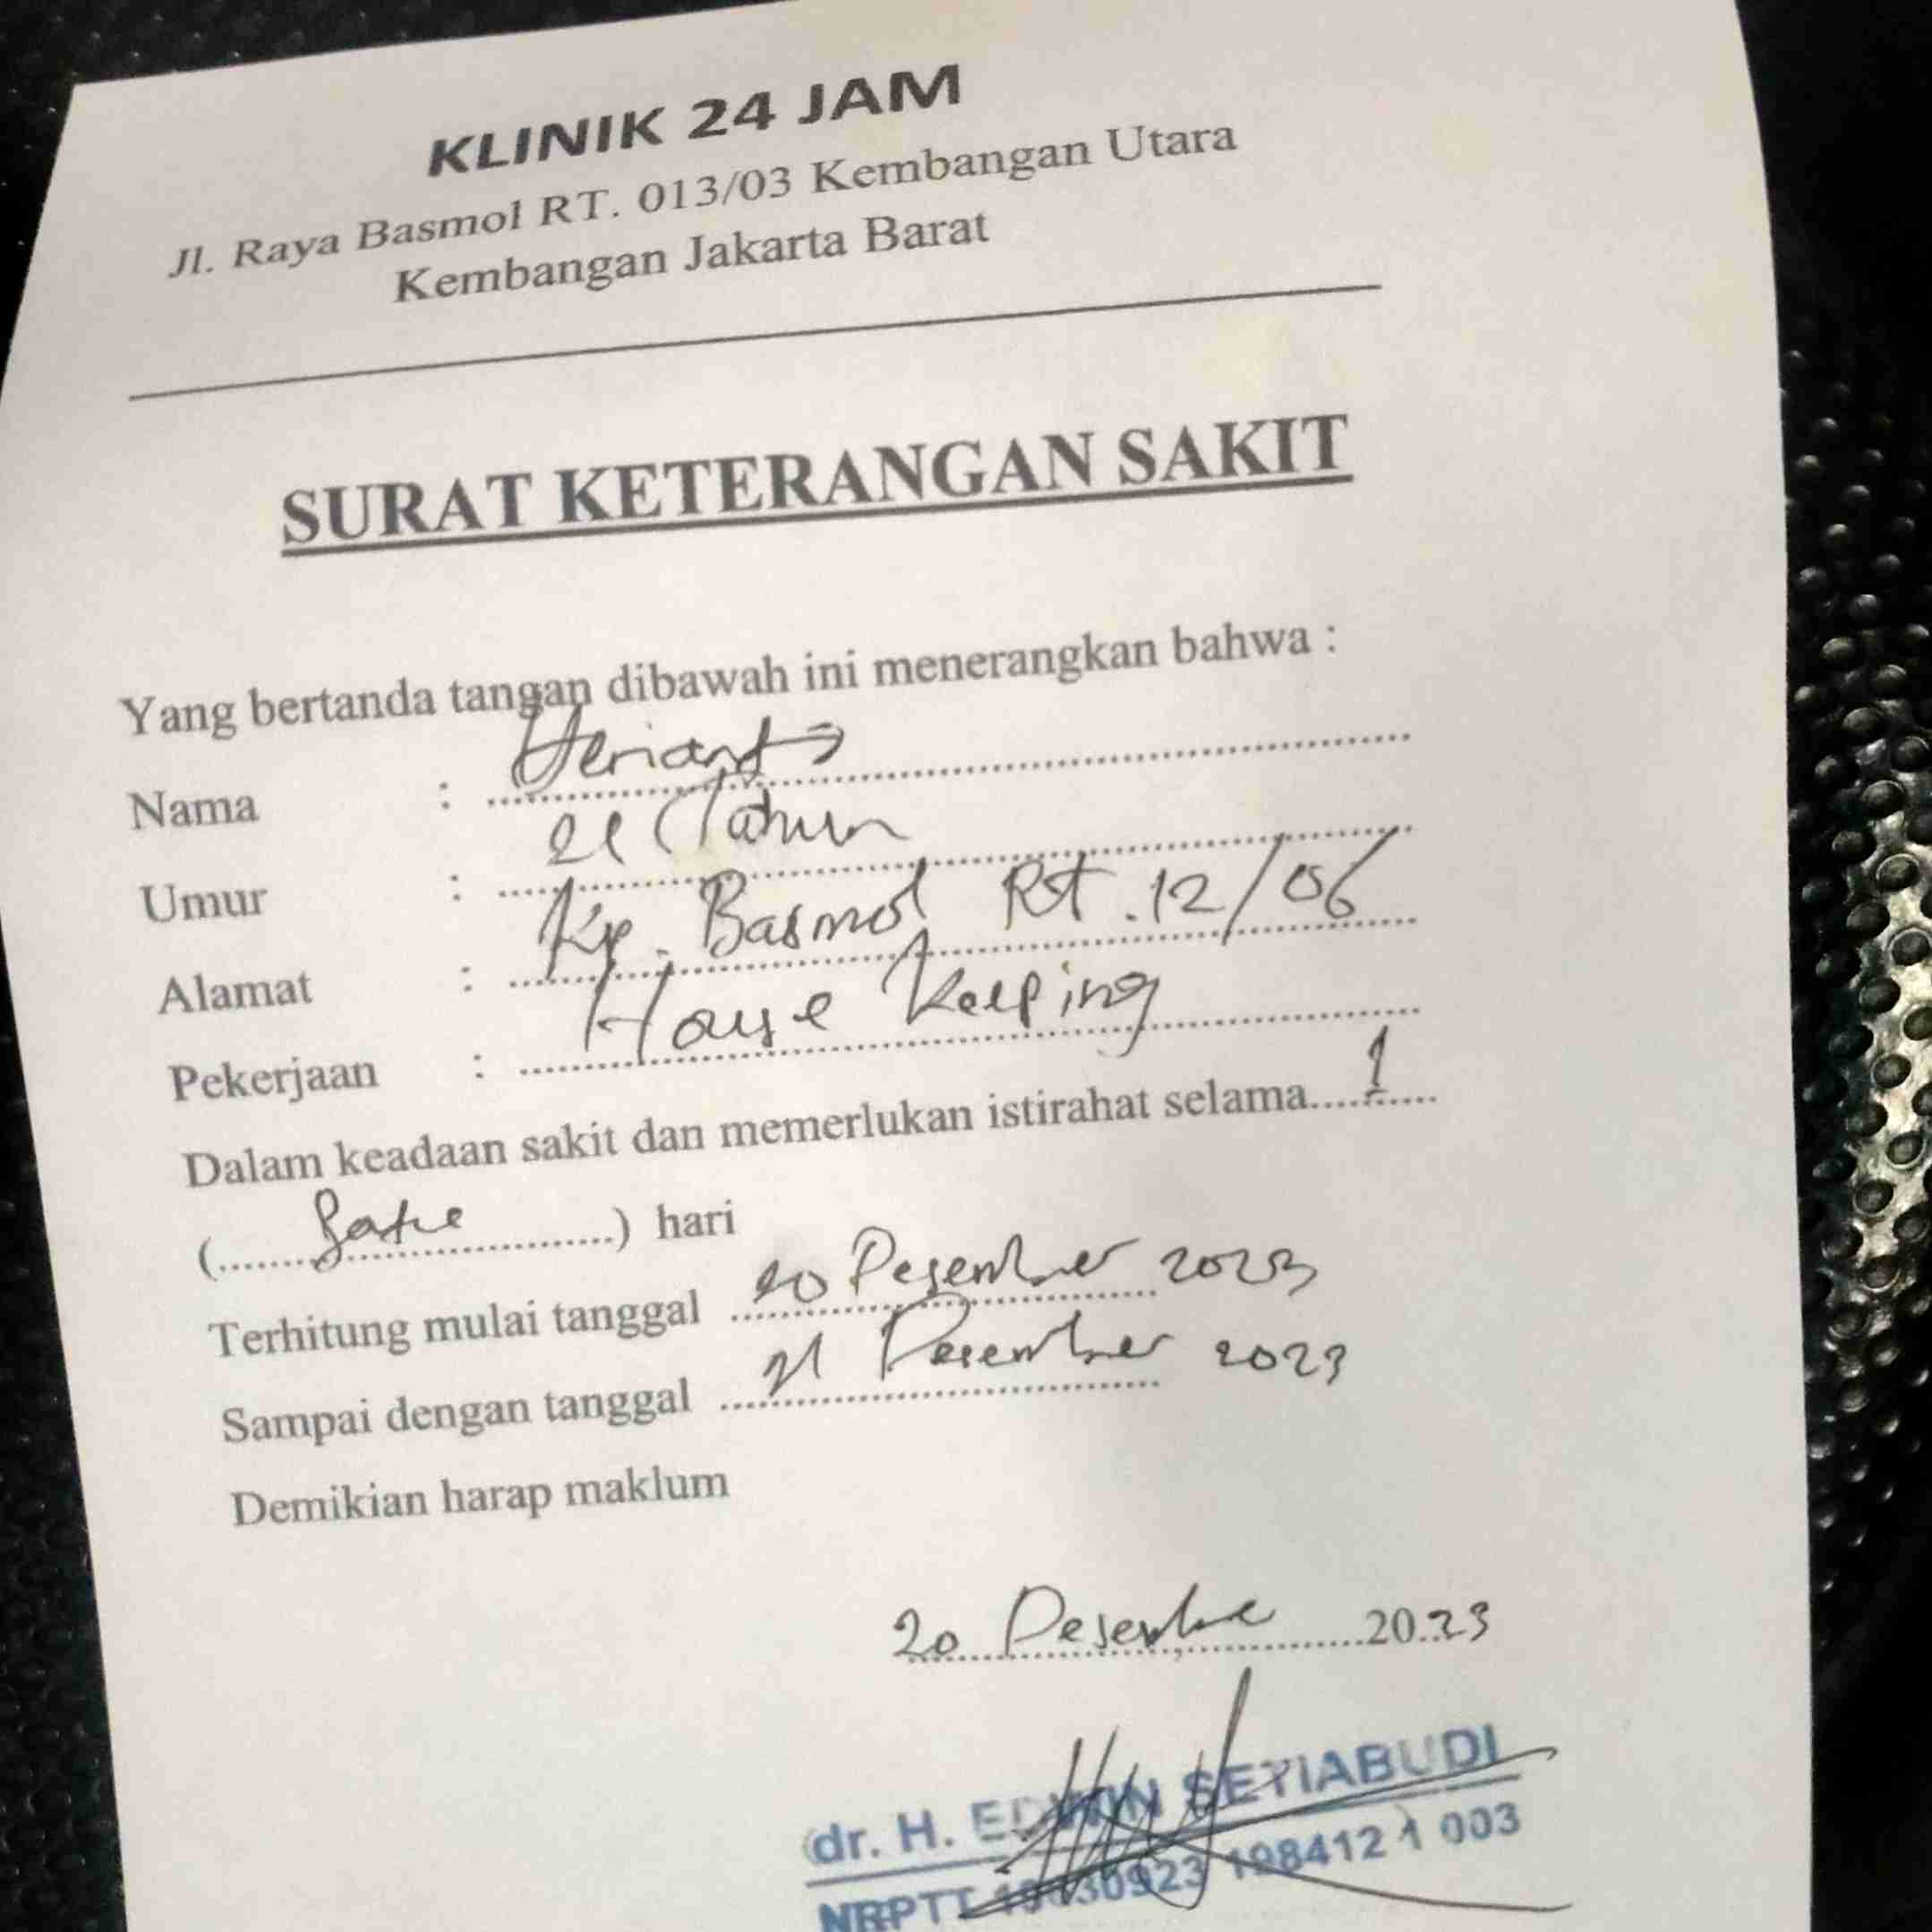 KLINIK 24 JAM
Jl. Raya Basmol RT. 013/03 Kembangan Utara
Kembangan Jakarta Barat
SURAT KETERANGAN SAKIT
Yang bertanda tangan dibawah ini menerangkan bahwa :
Nama : Herianto
Umur : 21 Tahun
Alamat : Kp. Basmol Rt. 12/06
Pekerjaan : House Keeping
Dalam keadaan sakit dan memerlukan istirahat selama....1....
(....Satu....) hari
Terhitung mulai tanggal 20 Desember 2023
Sampai dengan tanggal 21 Desember 2023
Demikian harap maklum
20 Desember 2023
dr. H. EDWIN SETIABUDI
NRPTT 198412 1 003